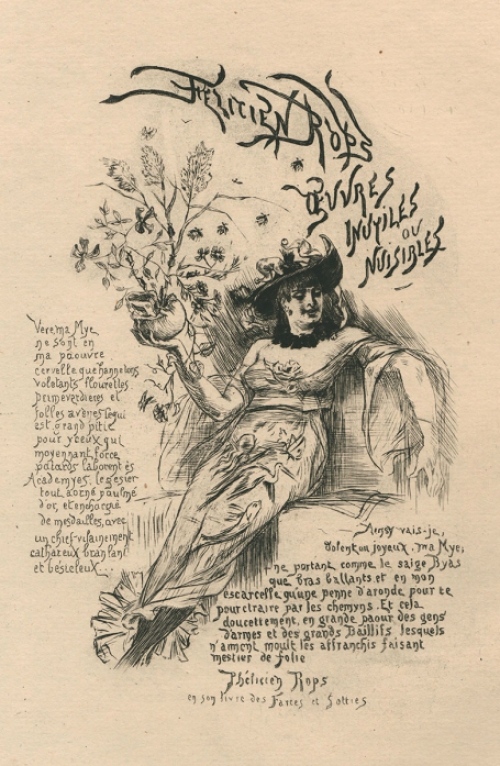 FÉLICIEN ROPS
ŒUVRES
INUTILES
OU
NUISIBLES
Verema Mye
ne sont en
ma paouvre
cervelle que hannetons
volotants flourettes
primeverdieres et
folles avènes. Ce qui
est grand pitié
pour yeeux qui
moyennant force
patards laborent ès
Academyes, les
tout aorné paulmé
d'or, et enchargié
de mesdailles, avec
un chief vilainement
cathareux branlant
et bésicleux...
Ainsy vais-je,
dolent ou joyeux, ma Mye,
ne portant comme le saige Byas
que bras ballants et en mon
escarcelle qu'une penne d'aronde, pour te
pourctraire par les chemyns. Et cela
doucettement, en grande paour des gens
d'armes et des grands Baillifs lesquels
n'aiment moult les affranchis faisant
mestier de folie
Phélicien Rops
en son livre des Farces et Sotties